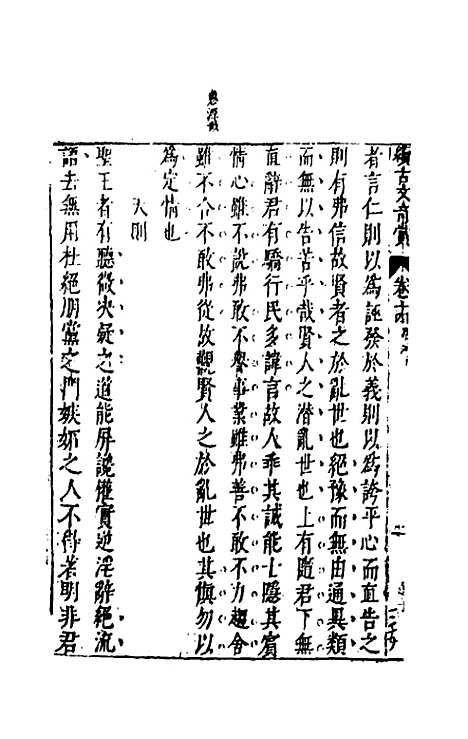 續古文奇賞
卷十
者言仁則以為誣發於義則以為誇平心而直告之
則有弗信故賢者之於亂世也絕豫而無由通異類
而無以告苦乎哉賢人之潛亂世也上有隨君下無
直辭君有驕行民多諱言故人乖其誠能士隱其實
情心雖不說弗敢不譽事業雖弗善不敢不力趨舍
雖不合不敢弗從故觀賢人之於亂世也其慎勿以
為定情也
天則
聖王者有聽微決疑之道能屏讒權實逆淫辭絕流
語去無用杜絕朋黨之門嫉妬之人不得著明非君